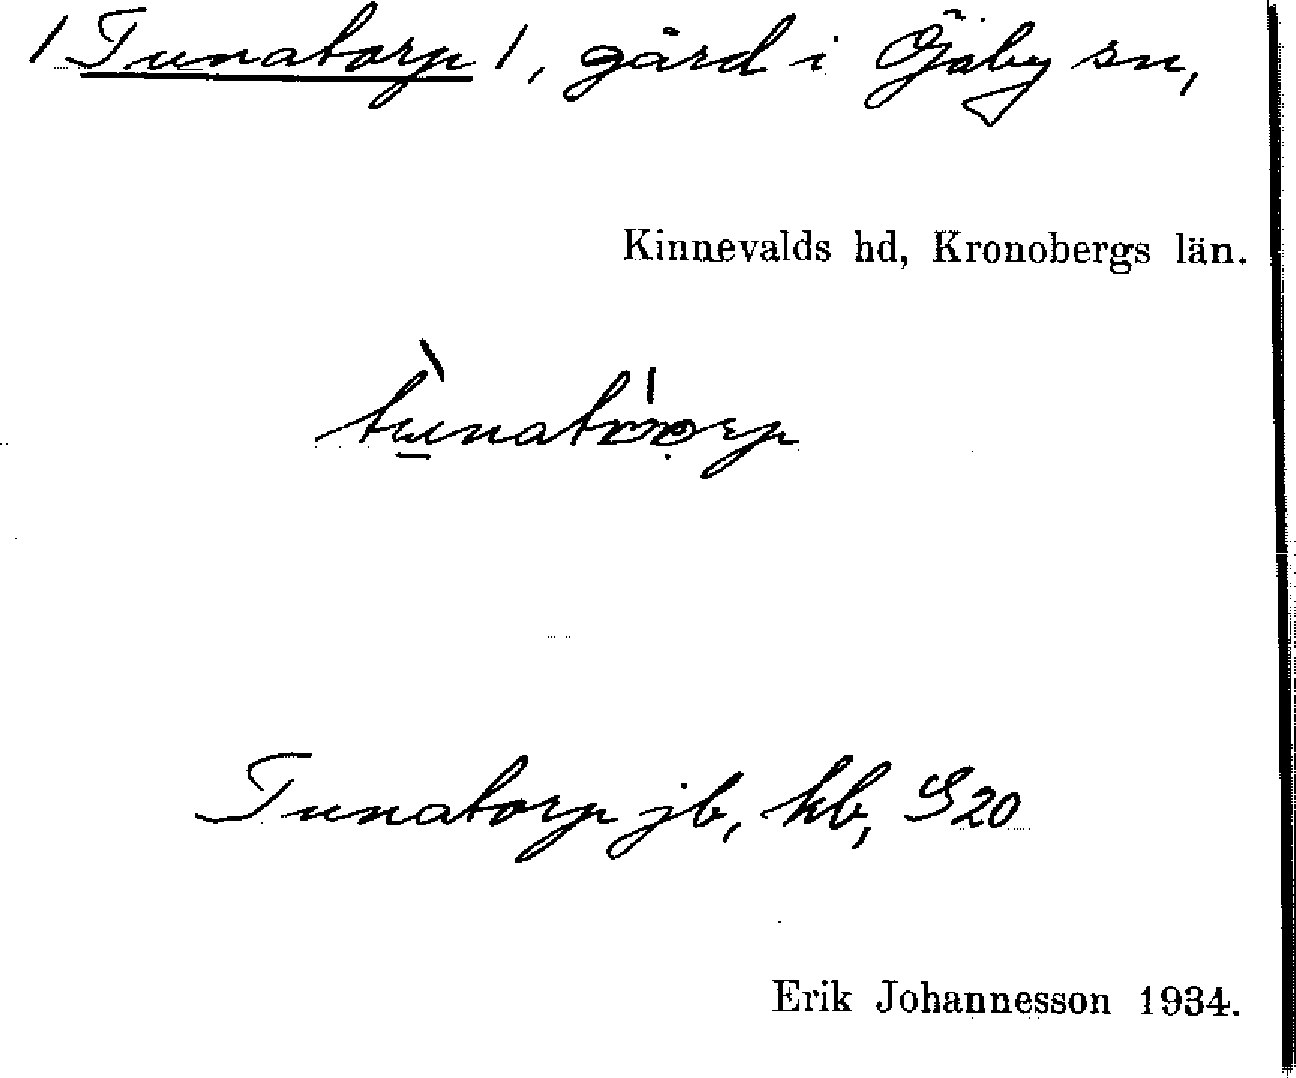 /Tunatorp/, gård i Öjaby sn,
Kinnevalds hd, Kronobergs län.
Tunatorp jb, kb, S20
Erik Johannesson 1934.